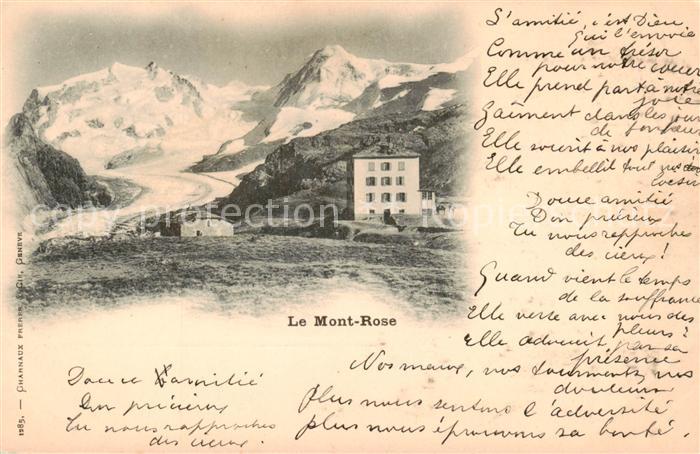 S'amitié, c'est Dieu
Qui l'envoie
Comme un trésor
pour notre coeur
Elle prend part à notre
joie
Elle sourit à nos plaisirs
Elle embellit tout
Douce amitié
Don précieux
Tu nous rapproches
des cieux!
Quand vient le temps
de la souffrance
Elle verse avec nous des
pleurs
Elle adoucit par sa
présence
Nos maux, nos tourments, nos
douleurs
Plus nous sentons l'adversité
plus nous éprouvons sa bonté.
Le Mont-Rose
Douce amitié
Don précieux
Tu nous rapproches
des cieux.
1285. — CHARNAUX FRÈRES & Cie, GENÈVE
copyright